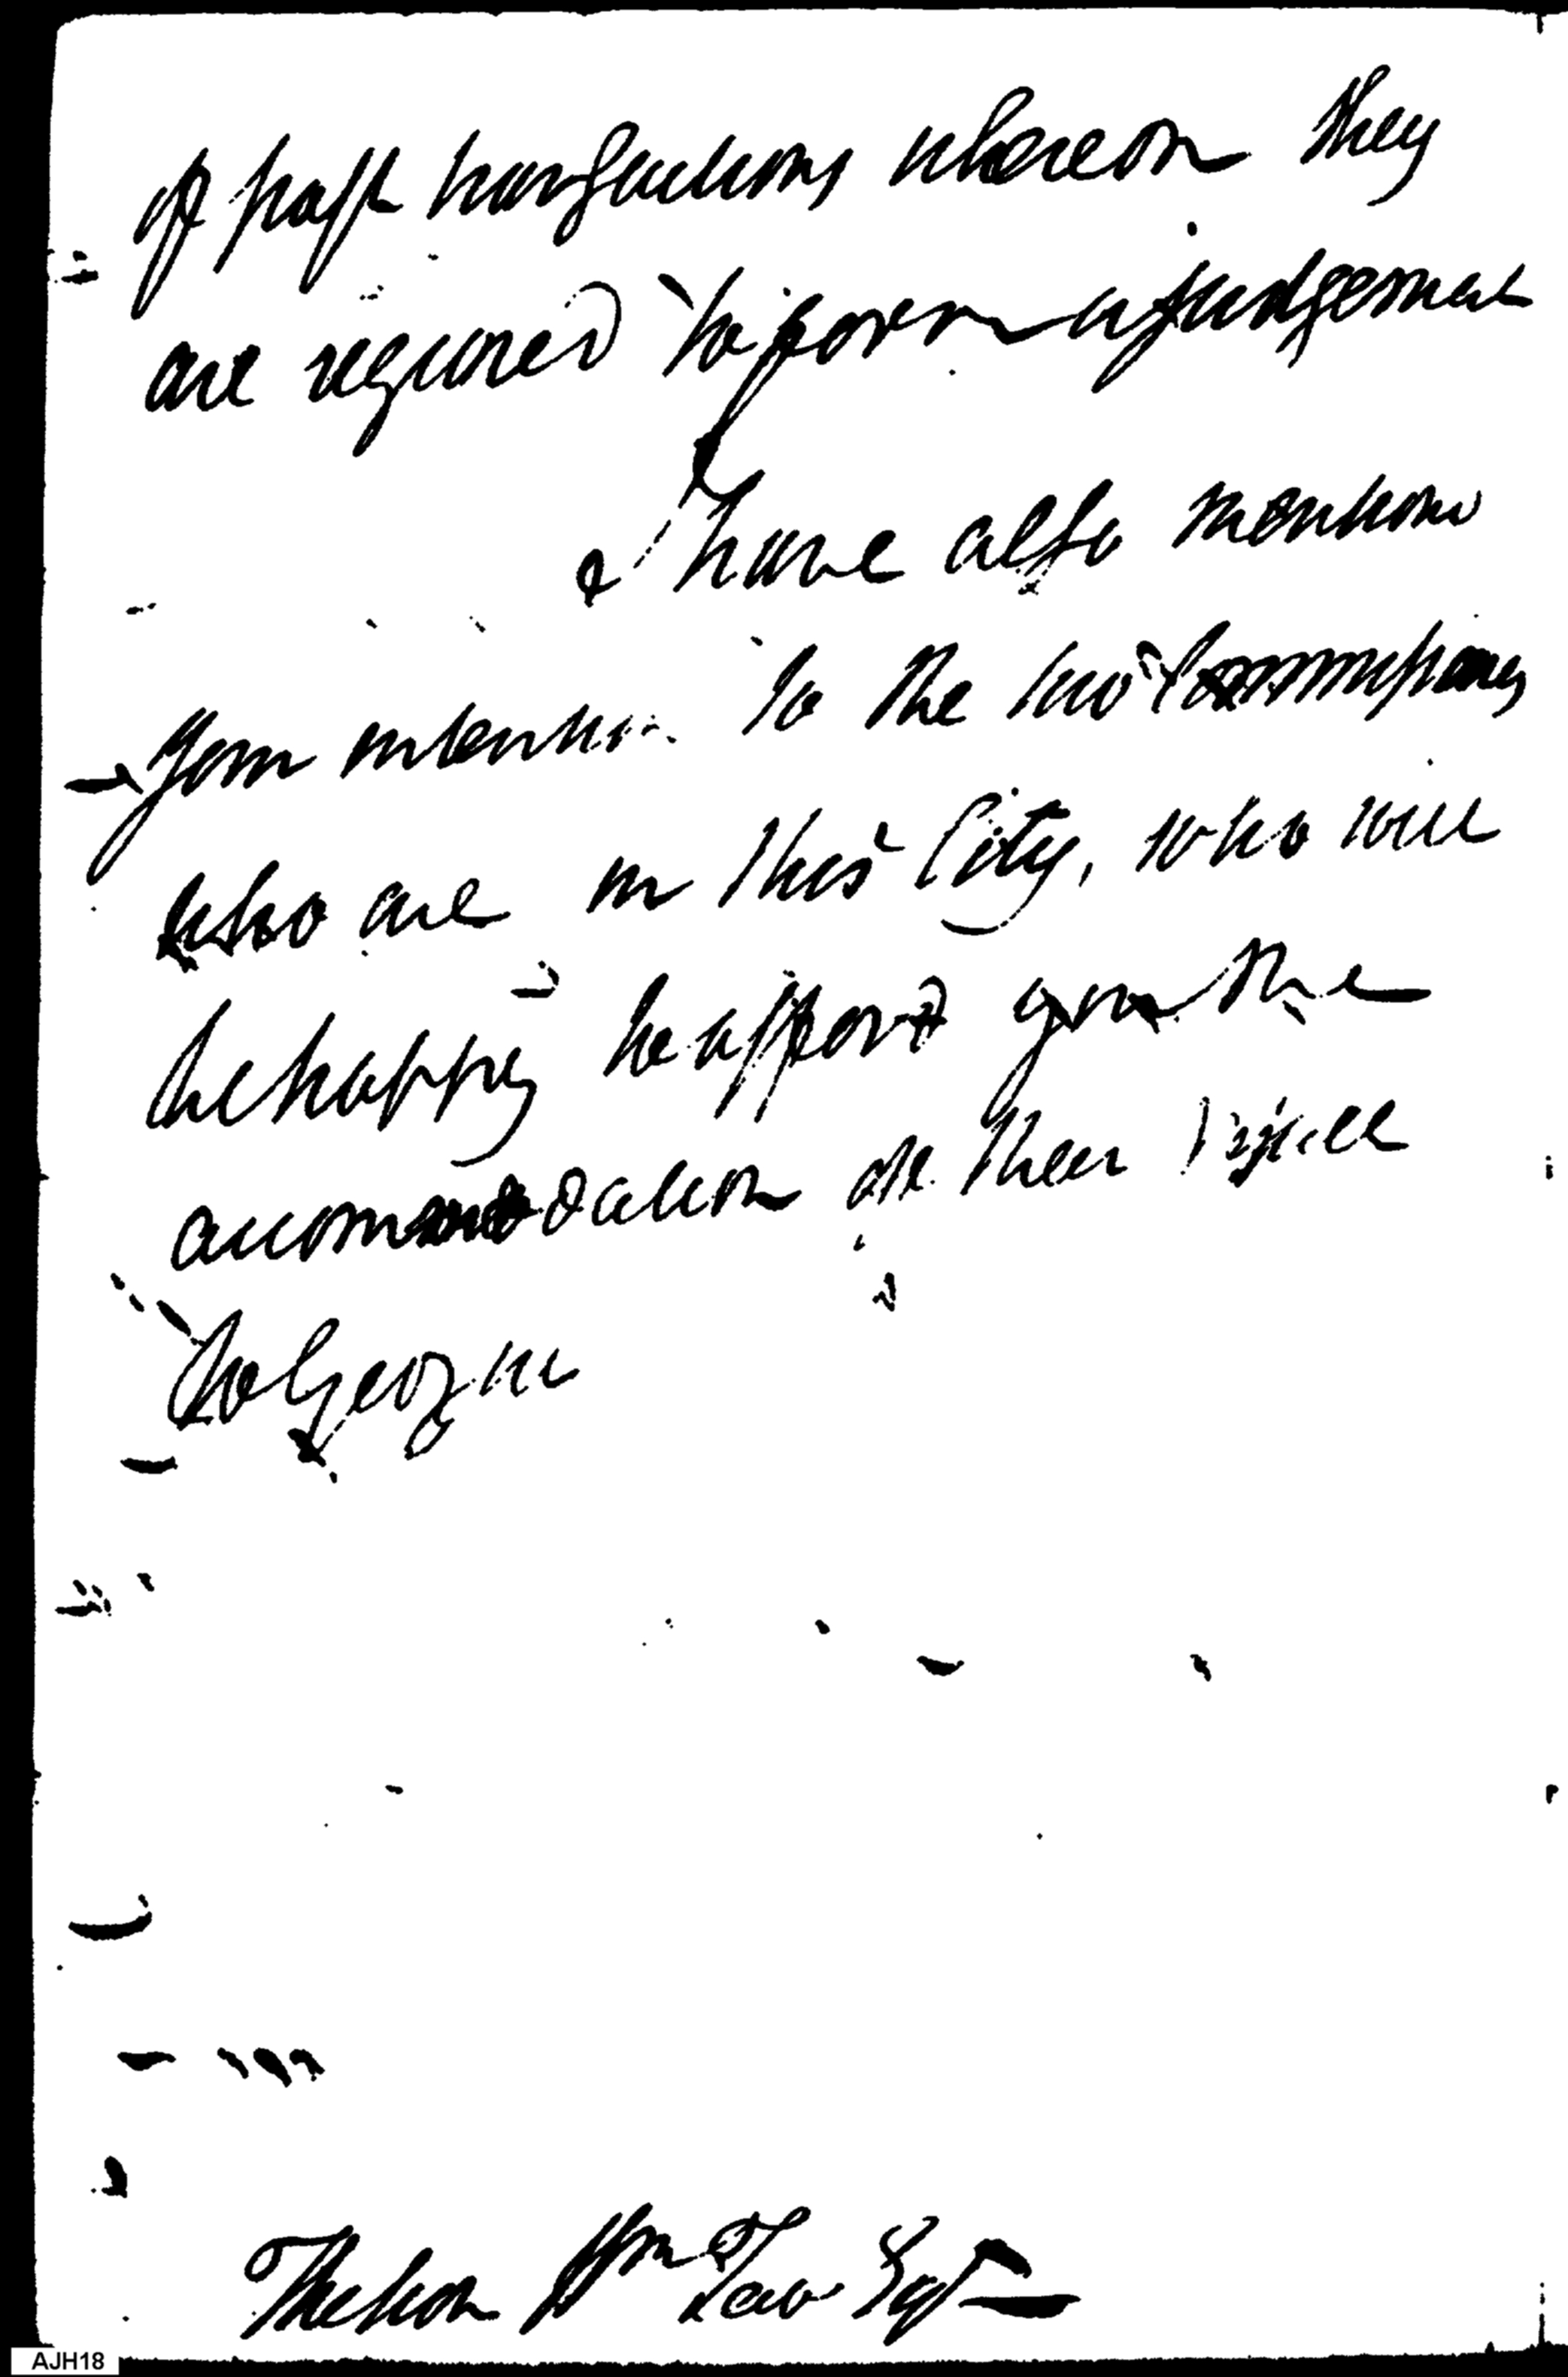 of past transactions whereon they
are required to form a judgement
I have also mentiond
Your intention to the two Commissioners
who are in this City, who will
be happy to afford you the
accommodation of their
to Geo
The Hon Wm Few Esqr
AJH18